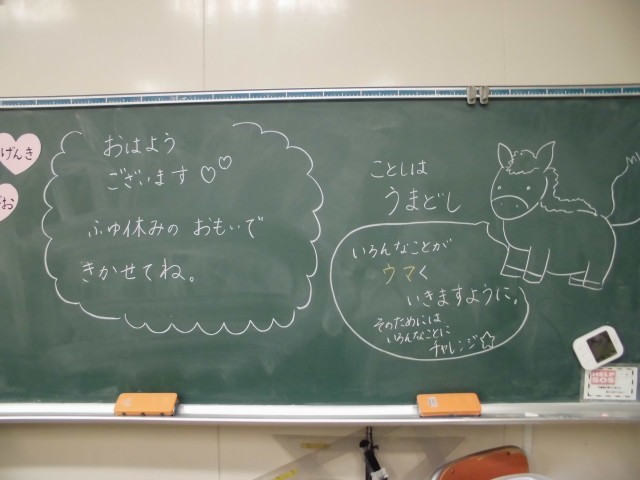 げんき
おはよう
ございます♡♡
ふゆ休みの おもいで
きかせてね。
ことしは
うまどし
いろんなことが
ウマく
いきますように。
そのためには
いろんなことに
チャレンジ☆